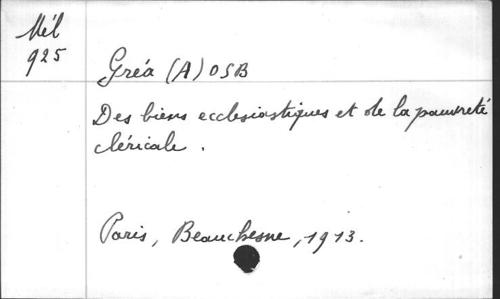 Mél
925
Gréa (A) OSB
Des biens ecclesiastiques et de la pauvreté
cléricale.
Paris, Beauchesne, 1913.